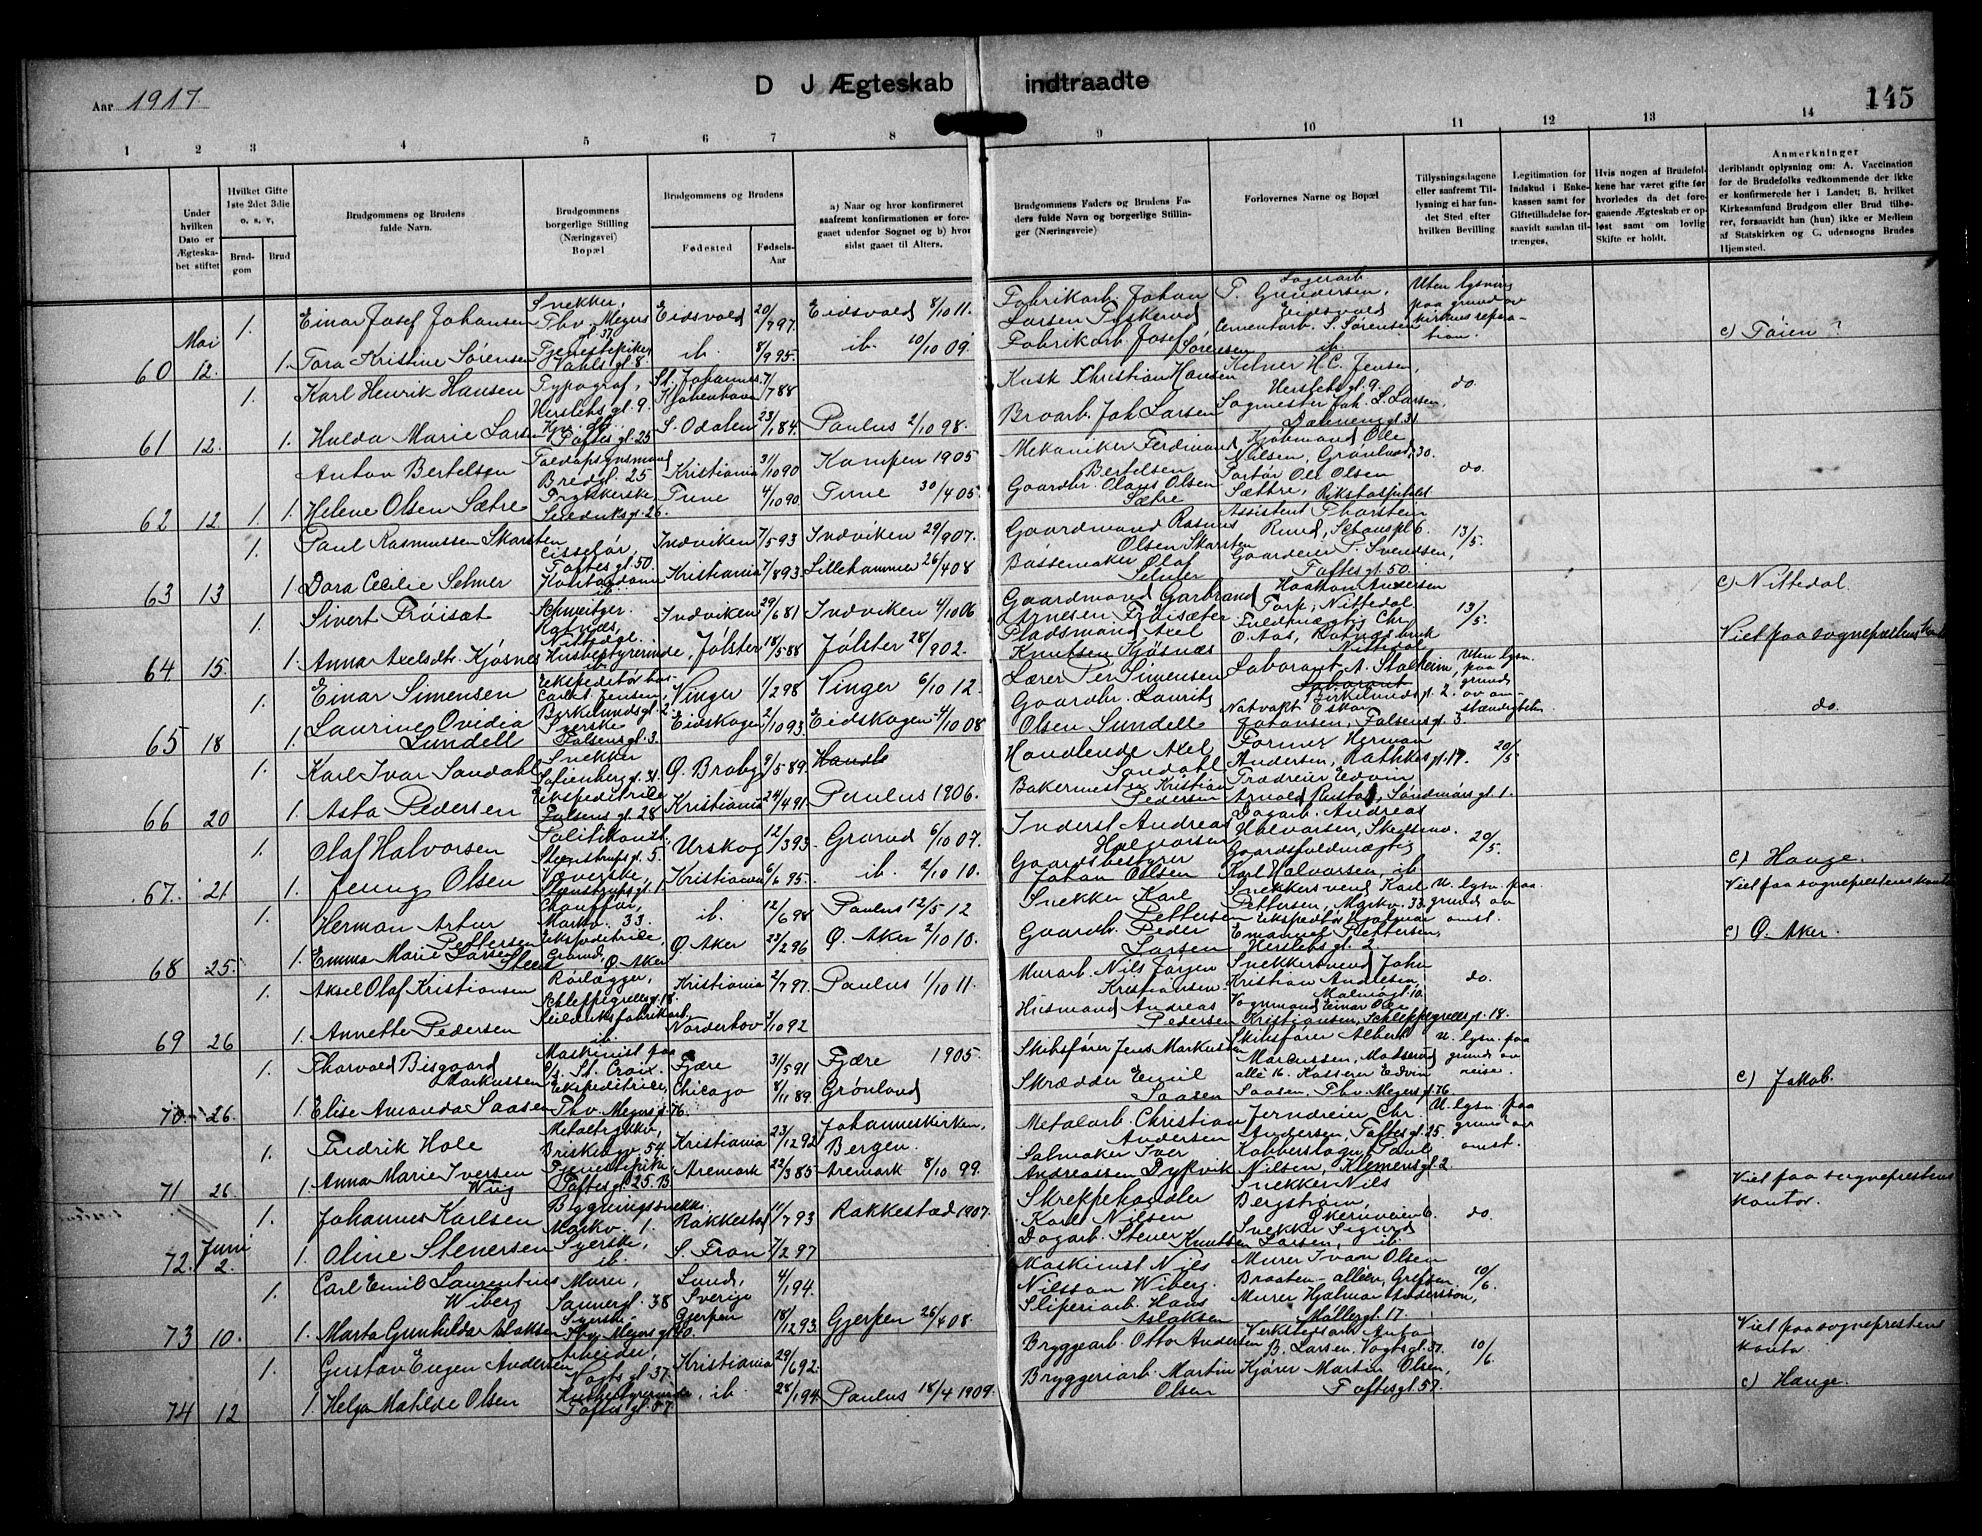 Aar 1917.
D J Ægteskab indtraadte
145
1 2 3 4 5 6 7 8 9 10 11 12 13 14
Under hvilken Dato er Ægteskabet stiftet
Hvilket Gifte 1ste 2det 3die o. s. v.
Brudgom
Brud
Brudgommens og Brudens fulde Navn.
Brudgommens borgerlige Stilling (Næringsvei) Bopæl
Brudgommens og Brudens
Fødested
Fødsels-Aar
a) Naar og hvor konfirmeret saafremt konfirmationen er foregaaet udenfor Sognet og b) hvor sidst gaaet til Alters.
Brudgommens Faders og Brudens Faders fulde Navn og borgerlige Stillinger (Næringsveie)
Forlovernes Navne og Bopæl
Tillysningsdagene eller saafremt Tillysning ei har fundet Sted efter hvilken Bevilling
Legitimation for Indskud i Enkekassen samt for Giftetilladelse forsaavidt saadan tiltrænges.
Hvis nogen af Brudefolkene har været gifte før hvorledes da det foregaaende Ægteskab er opløst samt om lovlig Skifte er holdt.
Anmerkninger deriblandt oplysning om: A. Vaccination for de Brudefolks vedkommende der ikke er konfirmerede her i Landet; B. hvilket Kirkesamfund Brudgom eller Brud tilhører, forsaavidt han (hun) ikke er Medlem af Statskirken og C. udensogns Brudes Hjemsted.
Mai 1. Einar Josef Johansen Snekker, Thv. Meyers g. 37 Eidsvold 20/7 97. Eidsvold 8/10 11. Fabrikarb. Johan Larsen Sagerarb. P. Gundersen, Eidsvold Uten lysning paa grund av kirkens reparation.
60 12. 1. Tora Kristine Sørensen Tjenestepike Vahls gt. 8. ib. 8/9 95. ib. 10/10 09. Fabrikarb. Josef Sørensen Cementarb. S. Sørensen ib. c) Tøien?
1. Karl Henrik Hansen Typograf, Herslebs gt. 9. St. Johannes, Kjøbenhavn 7/7 88 Kusk Christian Hansen Kelner H. C. Jensen, Herslebs gt. 9. do.
61 12. 1. Hulda Marie Larsen Toftes gt. 25 S. Odalen 23/1 84. Paulus 2/10 98. Broarb. Joh. Larsen Sagmester Joh. L. Larsen, Dænneng t. 31
Anton Bertelsen Toldopsynsmand Bredgt. 25 Kristiania 31/10 90 Kampen 1905 Mekaniker Ferdinand Bertelsen Kjøbmand Ole Nilsen, Grønland 30. do.
62 12 1. 1. Helene Olsen Sætre Trykkerske, Seilduksgt. 26. Tune 4/10 90. Tune 30/4 05. Gaardbr. Olaus Olsen Sætre Portør Ole Olsen Sættre, Rikshospitalet
1. Paul Rasmussen Skarsten Cisselør, Toftes gt. 50. Indviken 7/5 93 Indviken 29/9 07. Gaardmand Rasmus Olsen Skarsten Assistent Thorstein Rund, Schouspl. 6. 13/5.
63 13 1. Dora Cecilie Selmer Kontordame ib. Kristiania 7/8 93. Lillehammer 26/4 08 Bøssemaker Olaf Selmer Gaardeier P. Svendsen, Toftes gt. 50.
1. Sivert Frøisæt Schweitzer. Rotnæs, Nittedal. Indviken 29/6 81 Indviken 4/10 06 Gaardmand Garbrand Arnesen Frøisæter Haakon Andersen Torp, Nittedal. 13/5. c) Nittedal
64 15. 1. Anna Axelsdtr. Kjøsnes Husbestyrerinde, ib. Jølster 18/5 88 Jølster 28/9 02. Pladsmand Axel Knutsen Kjøsnæs Fuldmægtig Chr. O. Aas, Rotnæsbruk Nittedal Viet paa sogneprestens kontor
1. Einar Simensen Ekspeditør hos Carl Jensen, Birkelunds gt. 2. Vinger 1/2 98 Vinger 6/10 12. Lærer Per Simensen Laborant A. Stalheim, Birkelunds gt. 2. Uten lysn. paa grund av omstændigheter
65 18 1. Laurine Ovidia Lundell Syerske Falsensgt. 3. Eidskogen 2/10 93. Eidskogen 4/10 08 Gaardbr. Laurits Olsen Lundell Natvagt Oskar Johansen, Falsensgt. 3 do.
1. Karl Ivar Sandahl Snekker Sofienberg gt. 31. Ø. Broby 9/5 89. Handlende Axel Sandahl Former Herman Andersen, Rathkes gt. 17. 20/5
66 20 1. Asta Pedersen Ekspeditrice Falsens gt. 28 Kristiania 24/4 91 Paulus 1906. Bakermester Kristian Pedersen Trædreier Edvin Arnold Rustad, Søndmørs gt. 1.
1. Olaf Halvorsen Politikonst. Steenstrups gt. 5. Urskog 12/3 93. Grorud 6/10 07. Inderst Andreas Halvorsen Dagarb. Andreas Halvorsen, 20/5.
67. 21 1. Jenny Olsen Væverske, Steenstrupsgt. 1 Kristiania 6/6 95. ib. 2/10 10. Gaardsbestyrer Johan Olsen Gaardsfuldmægtig Karl Halvorsen, ib c) Hauge.
1. Herman Artur Pettersen Chauffør, Markv. 33. ib. 12/6 98 Paulus 12/5 12 Snekker Karl Pettersen Snekkersvend Karl Pettersen, Markv. 33. U. lysn. paa grund av omst. Viet paa sogneprestens kontor
68 25. 1. Emma Marie Larsen Steen Ekspeditrice, Grorud, Ø. Aker Ø. Aker 22/2 96 Ø. Aker 2/10 10. Gaardbr. Peder Larsen Ekspeditør Hjalmar Emanuel Pettersen, Herslebs gt. 2 c) Ø. Aker.
1. Aksel Olaf Kristiansen Rørlægger, Schleppegrells gt. 18. Kristiania 2/7 97. Paulus 1/10 11. Murarb. Nils Jørgen Kristiansen Snekkersvend John Kristian Andresen, Malmøgt. 10. do.
69 26 1. Annette Pedersen Seilduksfabrikarb. ib. Norderhov 3/10 92 Husmand Andreas Pedersen Vognmand Einar Olaf Kristiansen, Schleppegrells gt. 18.
1. Thorvald Bisgaard Markussen Maskinist paa S/S. St. Croix. Fjære 31/5 91 Fjære 1905. Skibsfører Jens Markussen Skibsfører Albert Marcussen, Madserud allé 16. U. lysn. paa grund av reise.
70. 26. 1. Elise Amanda Saasen Ekspeditrice, Thv. Meyers gt. 76. Chicago 8/11 89. Grønland Skrædder Emil Saasen Kasserer Edvin Saasen, Thv. Meyers gt. 76 c) Jakob.
1. Fredrik Hole Metaltrykker, Briskebyv. 54. Kristiania 23/12 92 Johanneskirken, Bergen. Metalarb. Christian Andersen Jerndreier Chr. Andersen, Toftes gt. 25 U. lysn. paa grund av omst.
71 26 1. Anna Marie Iversen Wiig Tjenestepike Toftes gt. 25. B Aremark 22/3 85 Aremark 8/10 99. Salmaker Iver Andreassen Dypvik Kobberslager Paul Nilsen, Klemens gt. 2
1. Johannes Karlsen Bygningssnekker Markv. 1. Rakkestad 11/7 93 Rakkestad 1907. Skreppehandler Karl Nilsen Snekker Nils Bergstrøm, Økernveien 6. do. Viet paa sogneprestens kontor.
72. Juni 2. 1. Oline Stenersen Syerske, ib. S. Fron 7/2 97 Dagarb. Stener Knutsen Snekker Sigurd Larsen, ib.
1. Carl Emil Laurentius Wiberg Murer, Sannergt. 38 Lund, Sverige 4/1 94. Maskinist Nils Nilsson Wiberg. Murer Ivan Olsen Braaten-alléen, Grefsen. 10/6.
73 10. 1. Marta Gunhilda Aslaksen Syerske, Thv. Meyers gt. 40. Gjerpen 18/12 93. Gjerpen 26/4 08. Sliperiarb. Hans Aslaksen Murer Hjalmar Andersson, Møllergt. 17.
1. Gustav Eugen Andersen Arbeider, Vogts gt. 37. Kristiania 29/6 92. Bryggearb. Otto Andersen Verkstedsarb. Anton B. Larsen, Vogts gt. 37. 10/6. Viet paa sogneprestens kontor
74 12 1. Helga Matilde Olsen Husbestyrerinde, Toftes gt. 57. ib. 28/1 94 Paulus 18/4 1909. Bryggeriarb. Martin Olsen Kjører Martin Olsen, Toftes gt. 57. c) Hauge.